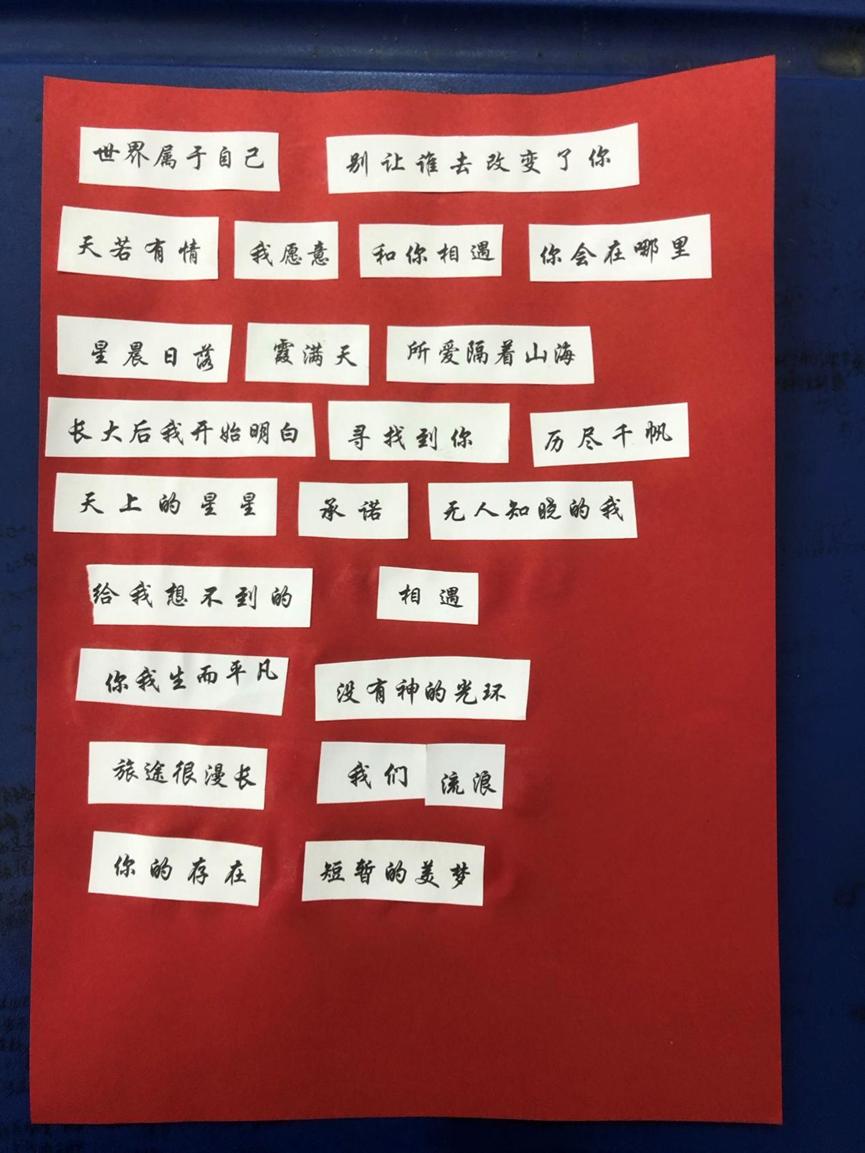 世界属于自己 别让谁去改变了你
天若有情 我愿意 和你相遇 你会在哪里
星晨日落 霞满天 所爱隔着山海
长大后我开始明白 寻找到你 历尽千帆
天上的星星 承诺 无人知晓的我
给我想不到的 相遇
你我生而平凡 没有神的光环
旅途很漫长 我们流浪
你的存在 短暂的美梦